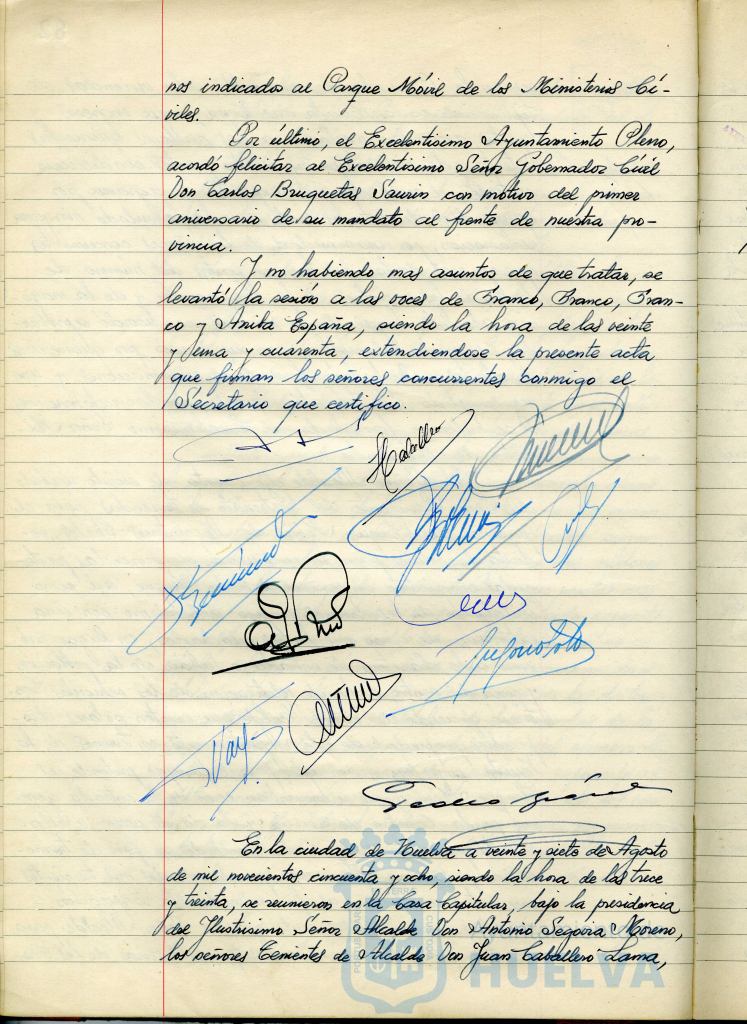 nos indicados al Parque Móvil de los Ministerios Ci-
viles.
Por último, el Excelentisimo Ayuntamiento Pleno,
acordó felicitar al Excelentisimo Señor Gobernador Civil
Don Carlos Bruguetas Saurin con motivo del primer
aniversario de su mandato al frente de nuestra pro-
vincia.
Y no habiendo mas asuntos de que tratar, se
levantó la sesión a las voces de Franco, Franco, Fran-
co y Arriba España, siendo la hora de las veinte
y una y cuarenta, extendiendose la presente acta
que firman los señores concurrentes conmigo el
Secretario que certifico.
HCaballero
En la ciudad de Huelva a veinte y siete de Agosto
de mil novecientos cincuenta y ocho, siendo la hora de las trece
y treinta, se reunieron en la Casa Capitular, bajo la presidencia
del Ilustrisimo Señor Alcalde Don Antonio Segovia Moreno,
los señores Tenientes de Alcalde Don Juan Caballero Lama,
HUELVA